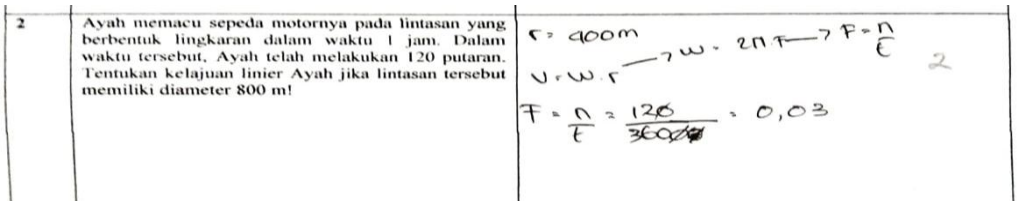 2
Ayah memacu sepeda motornya pada lintasan yang
berbentuk lingkaran dalam waktu 1 jam. Dalam
waktu tersebut, Ayah telah melakukan 120 putaran.
Tentukan kelajuan linier Ayah jika lintasan tersebut
memiliki diameter 800 m!
r = 400m
V = W . r → W = 2π.F → F = n/t
2
F = n/t = 120/3600 = 0,03